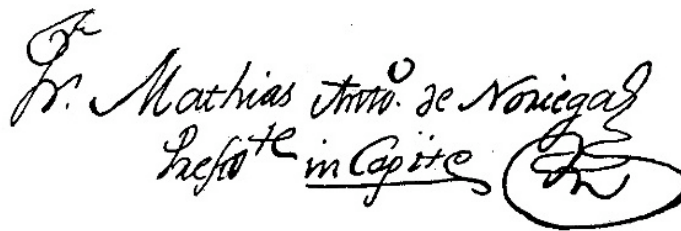 Fr. Mathias Anto. de Noriega
Presidte in Capite